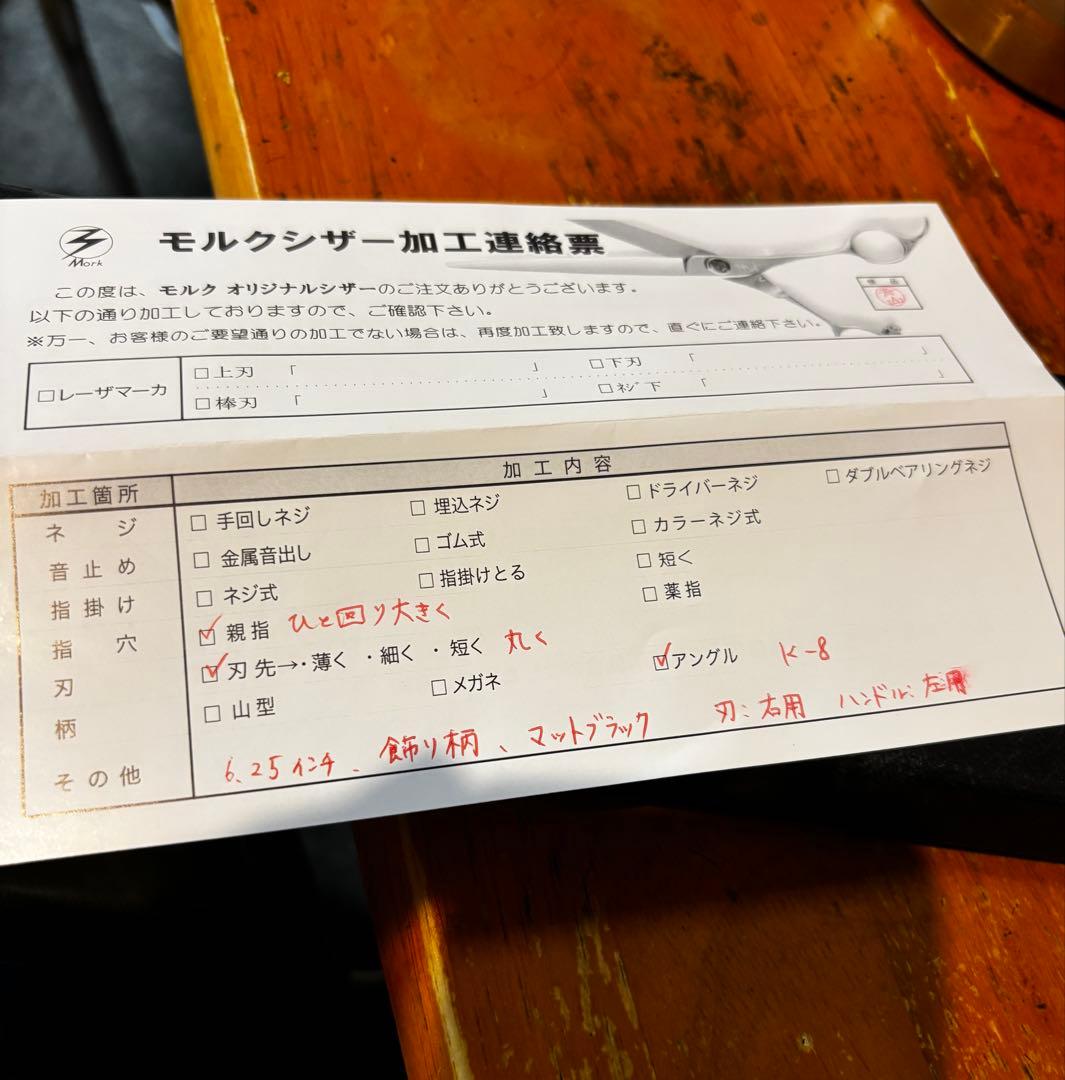 Mork
モルクシザー加工連絡票
この度は、モルク オリジナルシザーのご注文ありがとうございます。
以下の通り加工しておりますので、ご確認下さい。
※万一、お客様のご要望通りの加工でない場合は、再度加工致しますので、直ぐにご連絡下さい。
□レーザマーカ
□上刃 「 」 □下刃 「 」
□棒刃 「 」 □ネジ下 「 」
加工箇所 加工内容
ネジ □ 手回しネジ □ 埋込ネジ □ ドライバーネジ □ ダブルベアリングネジ
音止め □ 金属音出し □ ゴム式 □ カラーネジ式
指掛け □ ネジ式 □ 指掛けとる □ 短く
指穴 ☑ 親指 ひと回り大きく □ 薬指
刃 ☑ 刃先→・薄く ・細く ・短く 丸く
柄 □ 山型 □ メガネ ☑ アングル K-8
その他 6.25インチ、飾り柄、マットブラック 刃:右用 ハンドル:左用